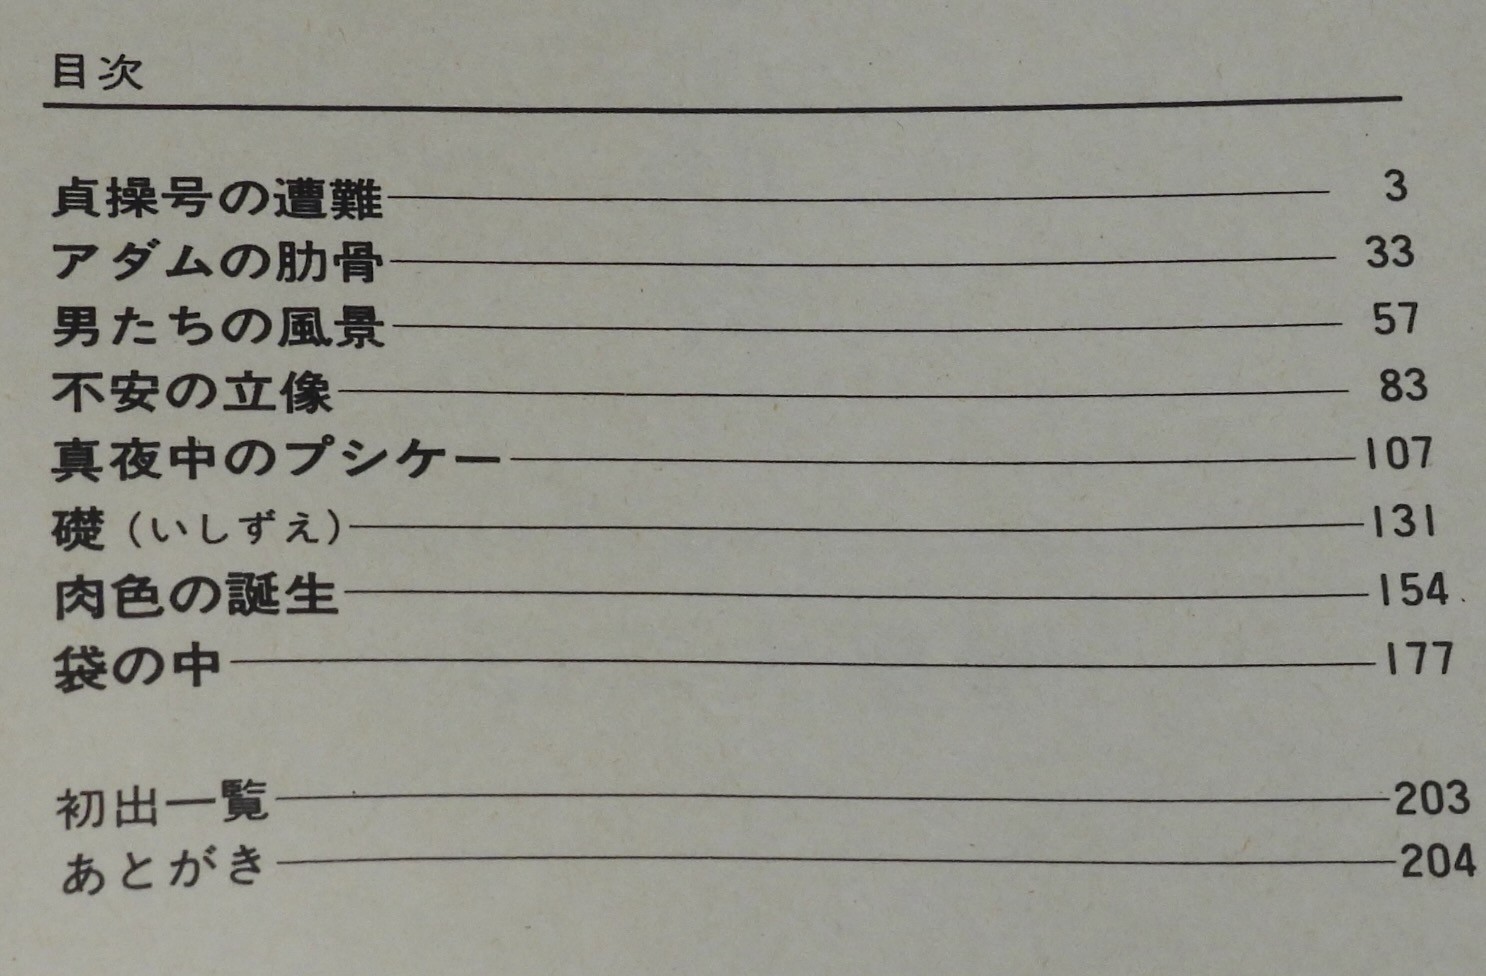 目次
貞操号の遭難 3
アダムの肋骨 33
男たちの風景 57
不安の立像 83
真夜中のプシケー 107
礎（いしずえ） 131
肉色の誕生 154
袋の中 177
初出一覧 203
あとがき 204